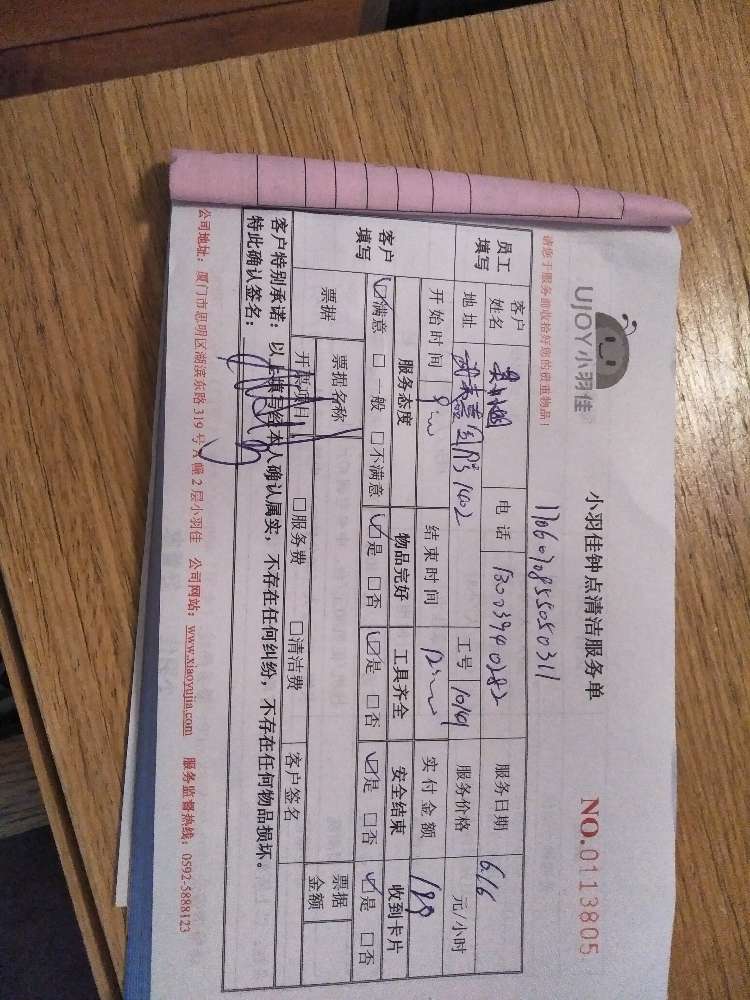 UJOY小羽佳
小羽佳钟点清洁服务单
NO.0113805
请您于服务前收拾好您的贵重物品!
1706070855050311
员工填写
客户姓名
电话 13003940282
服务日期 6.16
地址 1402
工号 10141
服务价格 元/小时
开始时间 9:00
结束时间 12:00
实付金额 189
客户填写
服务态度 物品完好 工具齐全 安全结束 收到卡片
☑满意 □一般 □不满意 ☑是 □否 ☑是 □否 ☑是 □否 ☑是 □否
票据
票据名称
票据金额
开票项目 □服务费 □清洁费 客户签名
客户特别承诺:以上填写经本人确认属实,不存在任何纠纷,不存在任何物品损坏。
特此确认签名:
公司地址:厦门市思明区湖滨东路319号A幢2层小羽佳 公司网站:www.xiaoyujia.com 服务监督热线:0592-5888123